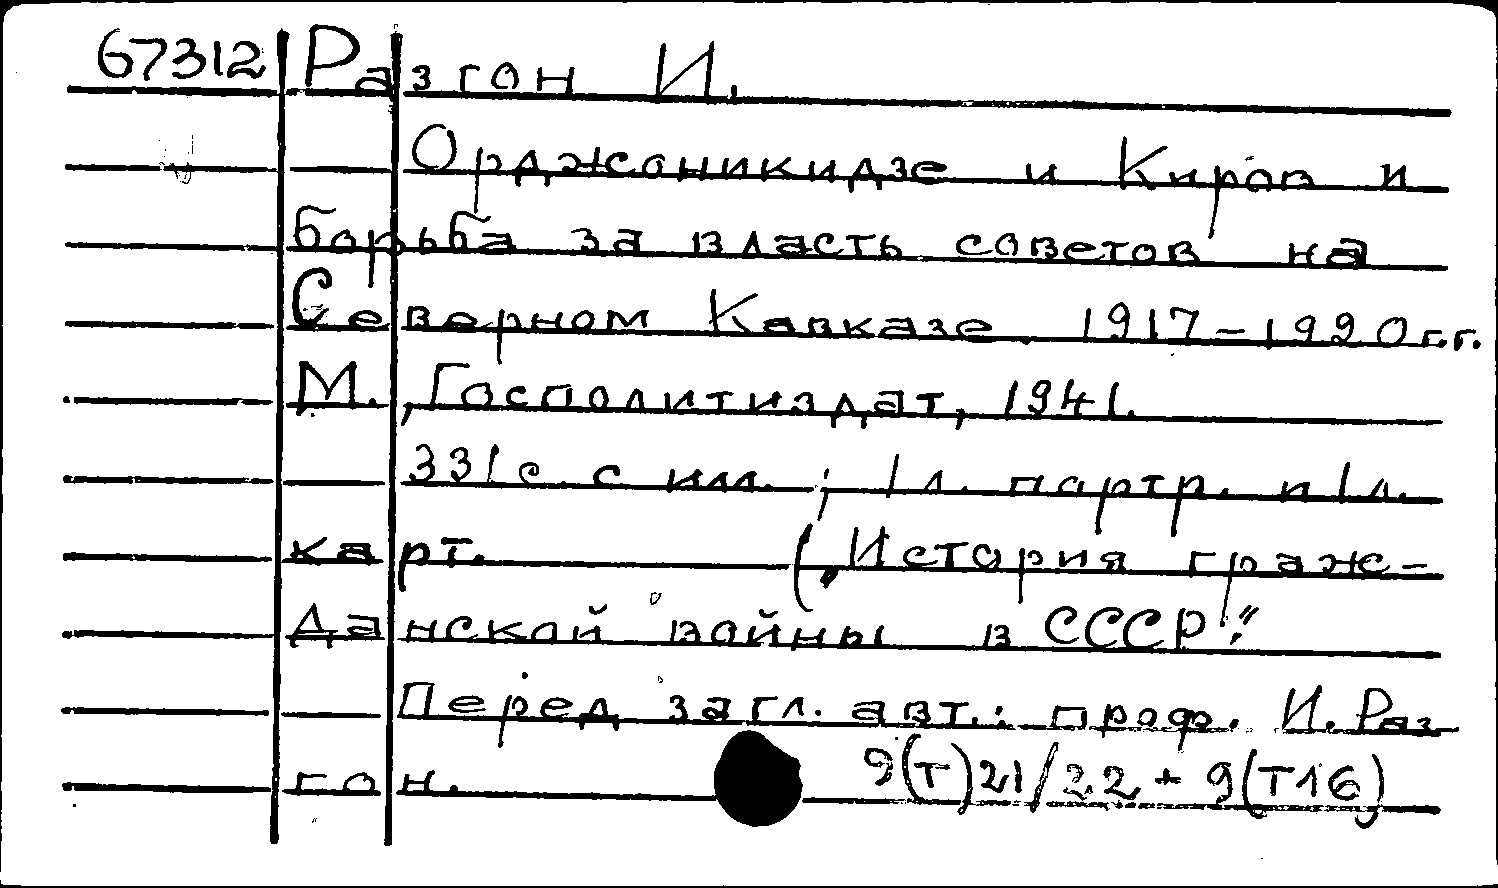 67312 Разгон И.
Орджоникидзе и Киров и
борьба за власть советов на
Северном Кавказе. 1917-1920 г.г.
М., Госполитиздат, 1941.
331 с. с илл.; 1 л. портр. и 1 л.
карт. („История граж-
данской войны в СССР".
Перед загл. авт.: проф. И. Раз-
гон. 9(Т)21/22 + 9(Т16)